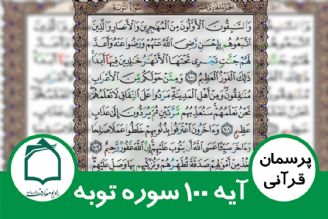 سورة التوبة
وَالسَّٰبِقُونَ الْأَوَّلُونَ مِنَ الْمُهَٰجِرِينَ وَالْأَنصَارِ وَالَّذِينَ
اتَّبَعُوهُم بِإِحْسَٰنٍ رَّضِيَ اللَّهُ عَنْهُمْ وَرَضُوا عَنْهُ وَأَعَدَّ
لَهُمْ جَنَّٰتٍ تَجْرِي تَحْتَهَا الْأَنْهَٰرُ خَٰلِدِينَ فِيهَا أَبَدًا
ذَٰلِكَ الْفَوْزُ الْعَظِيمُ ۝١٠٠ وَمِمَّنْ حَوْلَكُم مِّنَ الْأَعْرَابِ
مُنَٰفِقُونَ وَمِنْ أَهْلِ الْمَدِينَةِ مَرَدُوا عَلَى النِّفَاقِ لَا تَعْلَمُهُمْ
نَحْنُ نَعْلَمُهُمْ سَنُعَذِّبُهُم مَّرَّتَيْنِ ثُمَّ يُرَدُّونَ إِلَىٰ عَذَابٍ
عَظِيمٍ ۝١٠١ وَءَاخَرُونَ اعْتَرَفُوا بِذُنُوبِهِمْ خَلَطُوا عَمَلًا صَٰلِحًا
وَءَاخَرَ سَيِّئًا عَسَى اللَّهُ أَن يَتُوبَ عَلَيْهِمْ إِنَّ اللَّهَ غَفُورٌ رَّحِيمٌ
خُذْ مِنْ أَمْوَٰلِهِمْ صَدَقَةً تُطَهِّرُهُمْ وَتُزَكِّيهِم بِهَا وَصَلِّ عَلَيْهِمْ
پرسمان
قرآنی
آیه ۱۰۰ سوره توبه
رادیو معارف